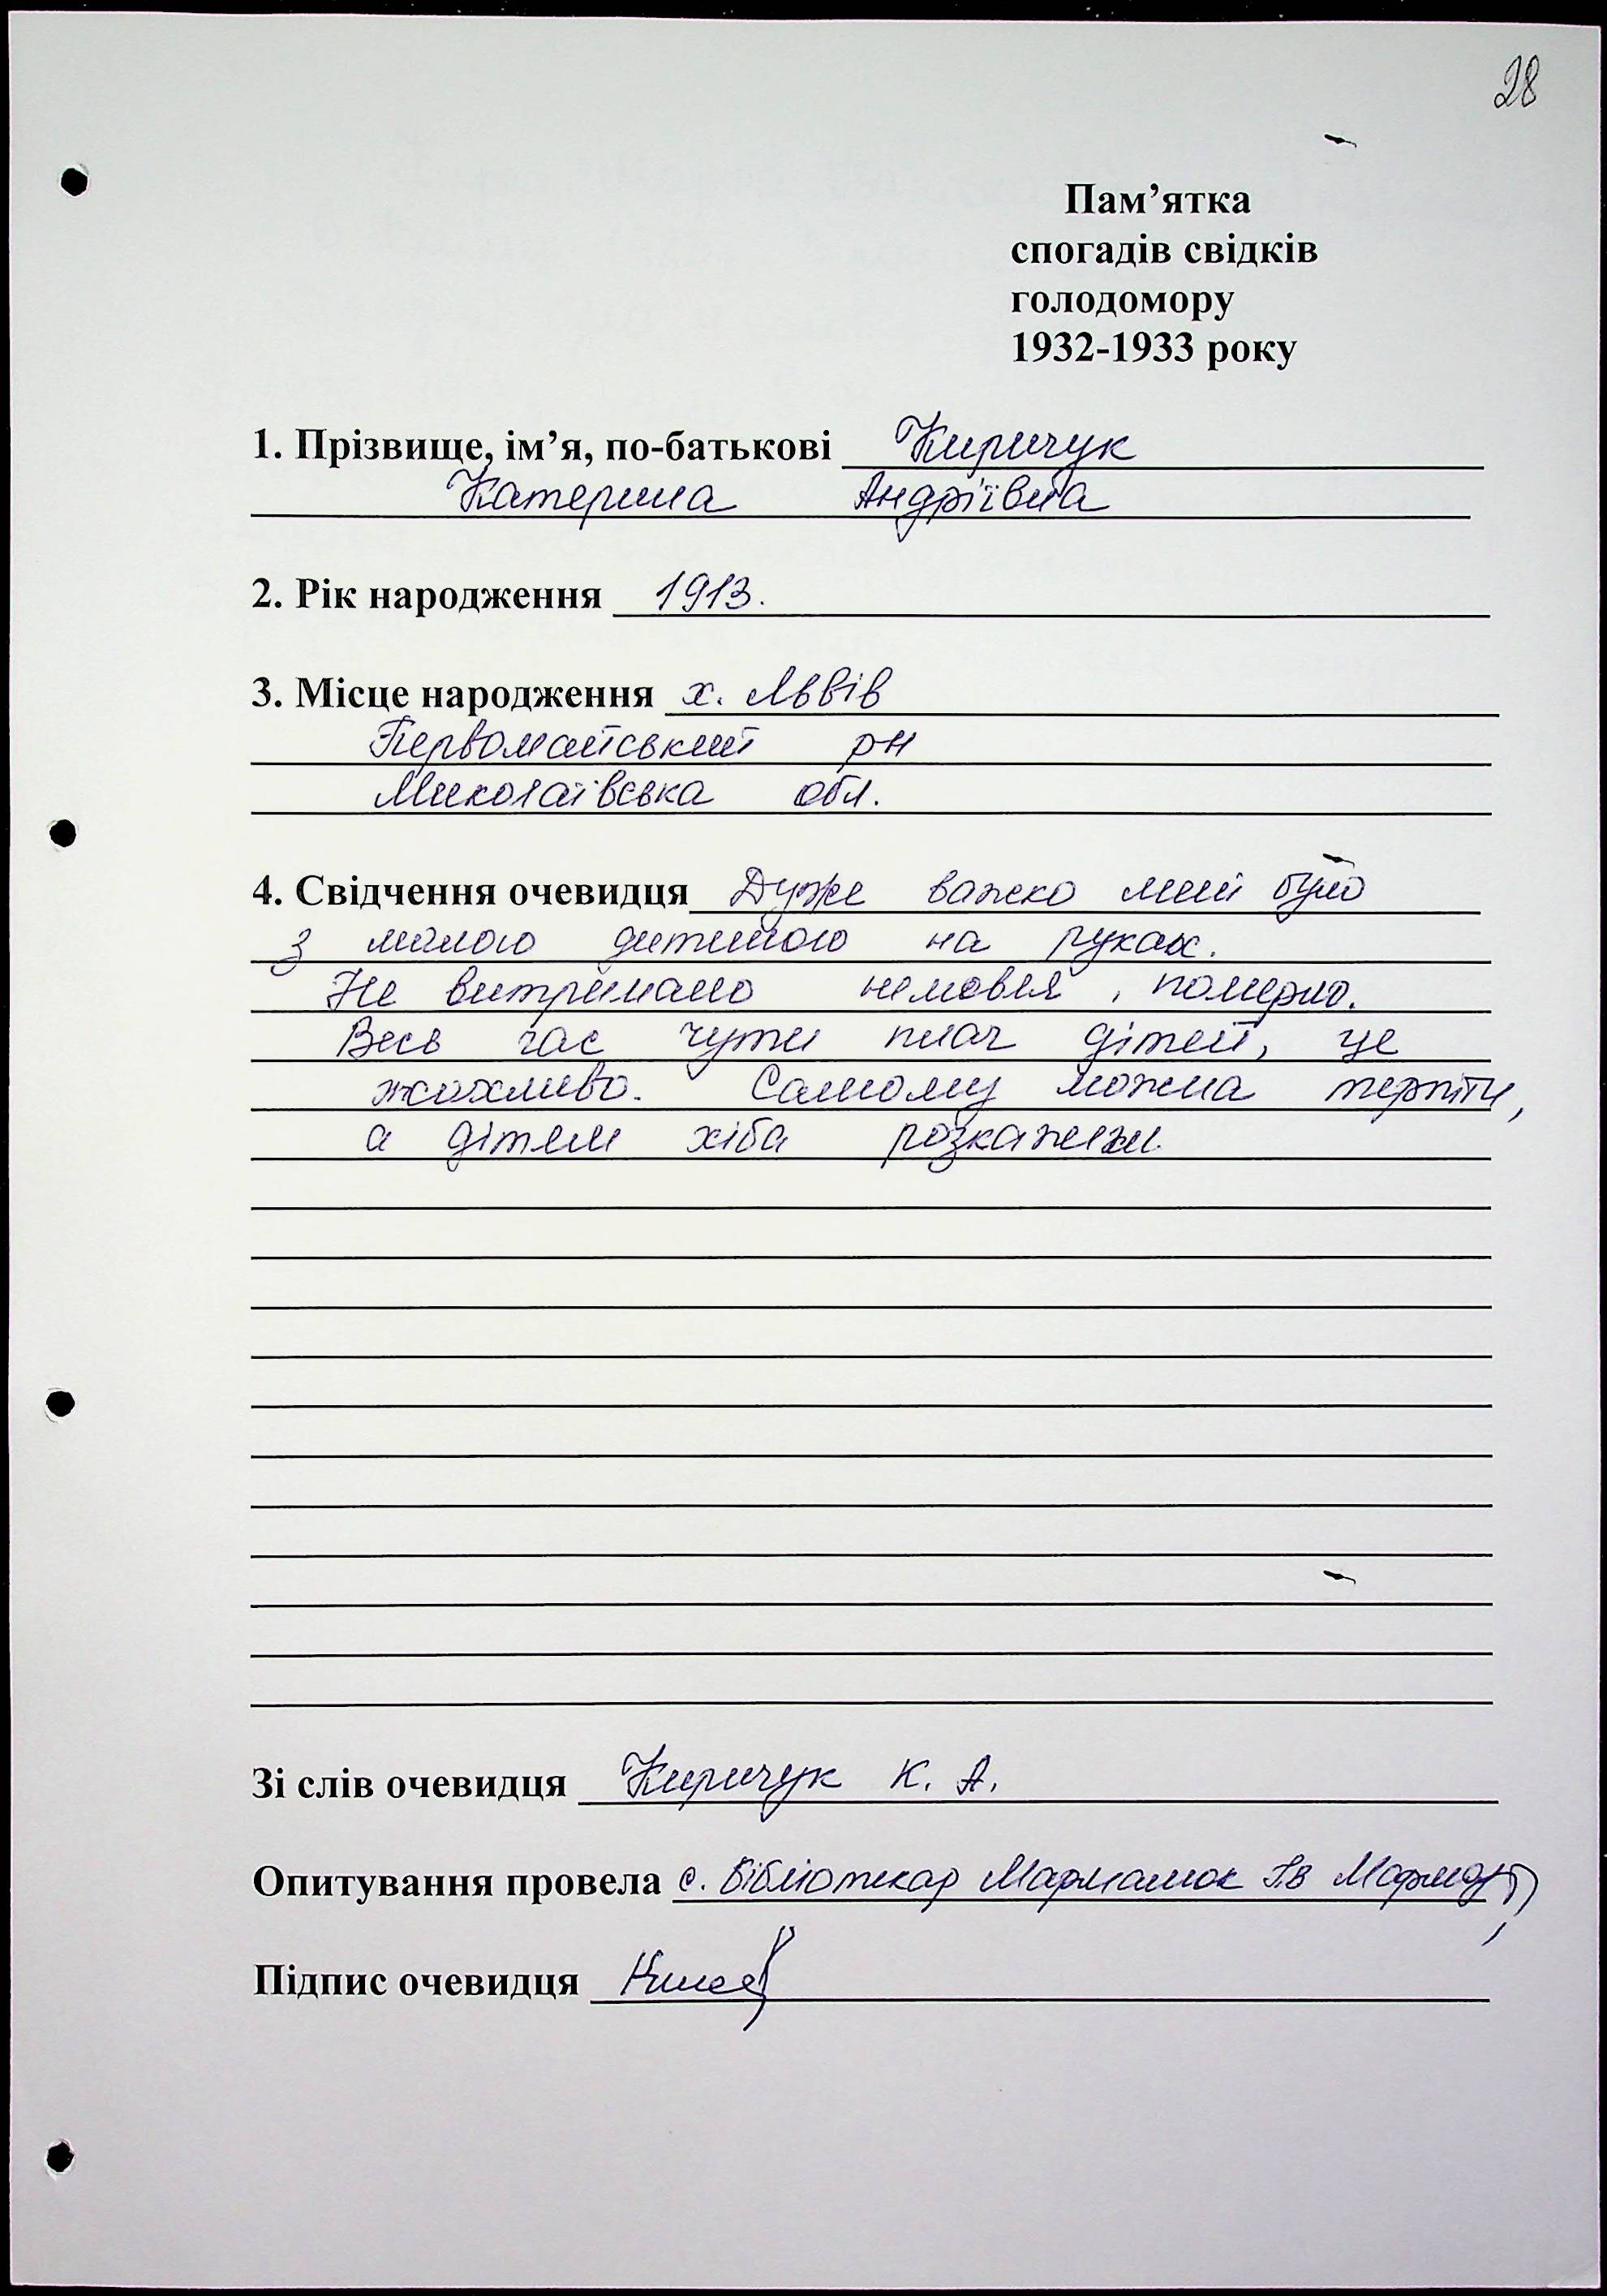 28
Пам’ятка
спогадів свідків
голодомору
1932-1933 року
1. Прізвище, ім’я, по-батькові Киричук
Катерина Андріївна
2. Рік народження 1913.
3. Місце народження х. Львів
Первомайський рн
Миколаївська обл.
4. Свідчення очевидця Дуже важко мені було
з малою дитиною на руках.
Не витримало немовля, померло.
Весь час чути плач дітей, це
жахливо. Самому можна терпіти,
а дітям хіба розкажеш.
Зі слів очевидця Киричук К. А.
Опитування провела с. бібліотекар
Підпис очевидця